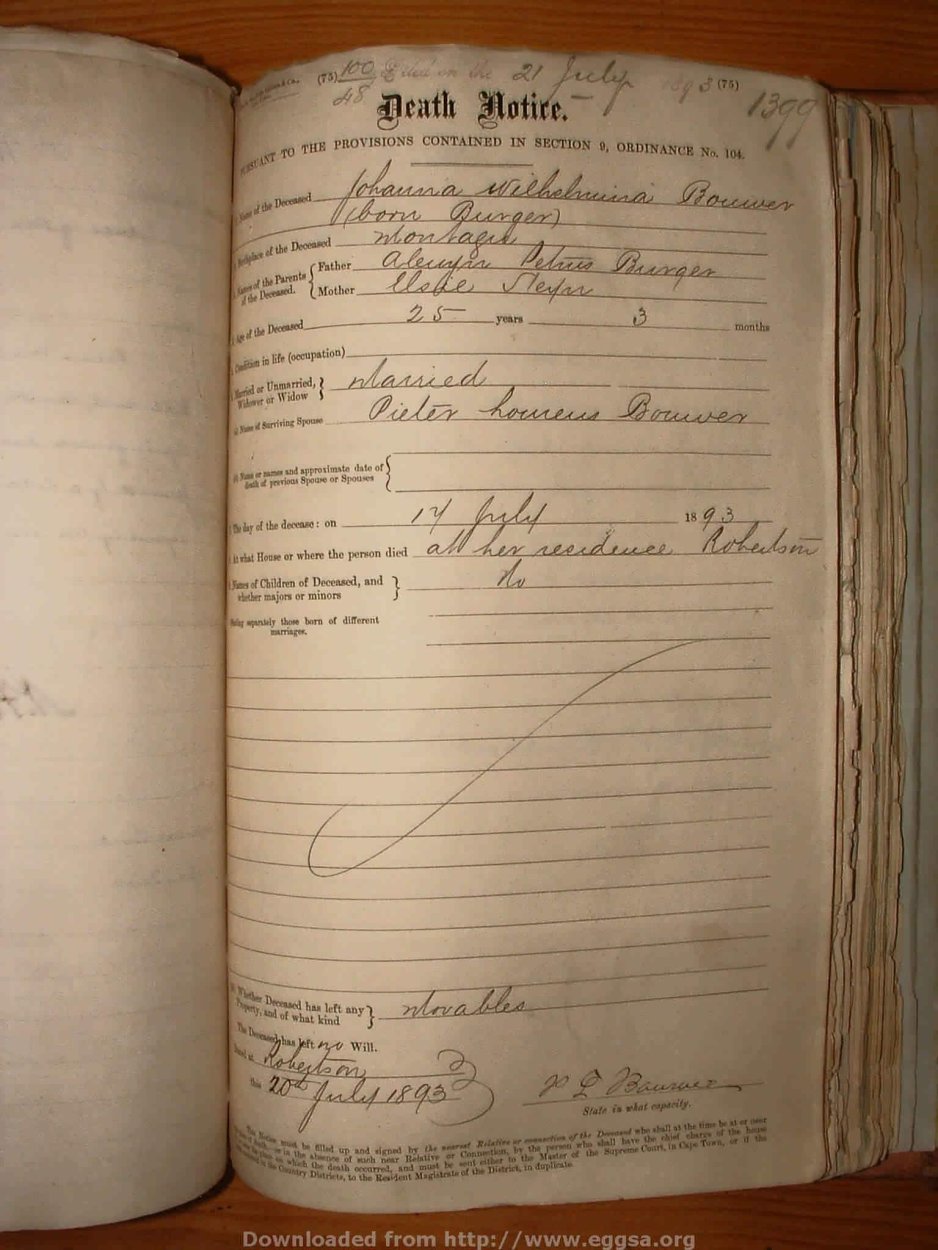 (75) 100 Filed on the 21 July 1893 (75)
48 1399
Death Notice.
PURSUANT TO THE PROVISIONS CONTAINED IN SECTION 9, ORDINANCE No. 104.
Name of the Deceased Johanna Wilhelmina Bouwer
(born Burger)
Birthplace of the Deceased Montagu
Names of the Parents of the Deceased. Father Alewyn Petrus Burger
Mother Elsie Steyn
Age of the Deceased 25 years 3 months
Condition in life (occupation)
Married or Unmarried, Widower or Widow Married
(a) Name of Surviving Spouse Pieter Lourens Bouwer
(b) Name or names and approximate date of
death of previous Spouse or Spouses
The day of the decease: on 14 July 1893
At what House or where the person died at her residence Robertson
Names of Children of Deceased, and No
whether majors or minors
Stating separately those born of different
marriages.
Whether Deceased has left any
Property, and of what kind Movables
The Deceased has left no Will.
Dated at Robertson
this 20th July 1893 P L Bouwer
State in what capacity.
This Notice must be filled up and signed by the nearest Relative or connection of the Deceased who shall at the time be at or near
or in the absence of such near Relative or Connection, by the person who shall have the chief charge of the house
in which the death occurred, and must be sent either to the Master of the Supreme Court, in Cape Town, or if the
in the Country Districts, to the Resident Magistrate of the District, in duplicate.
Downloaded from http://www.eggsa.org